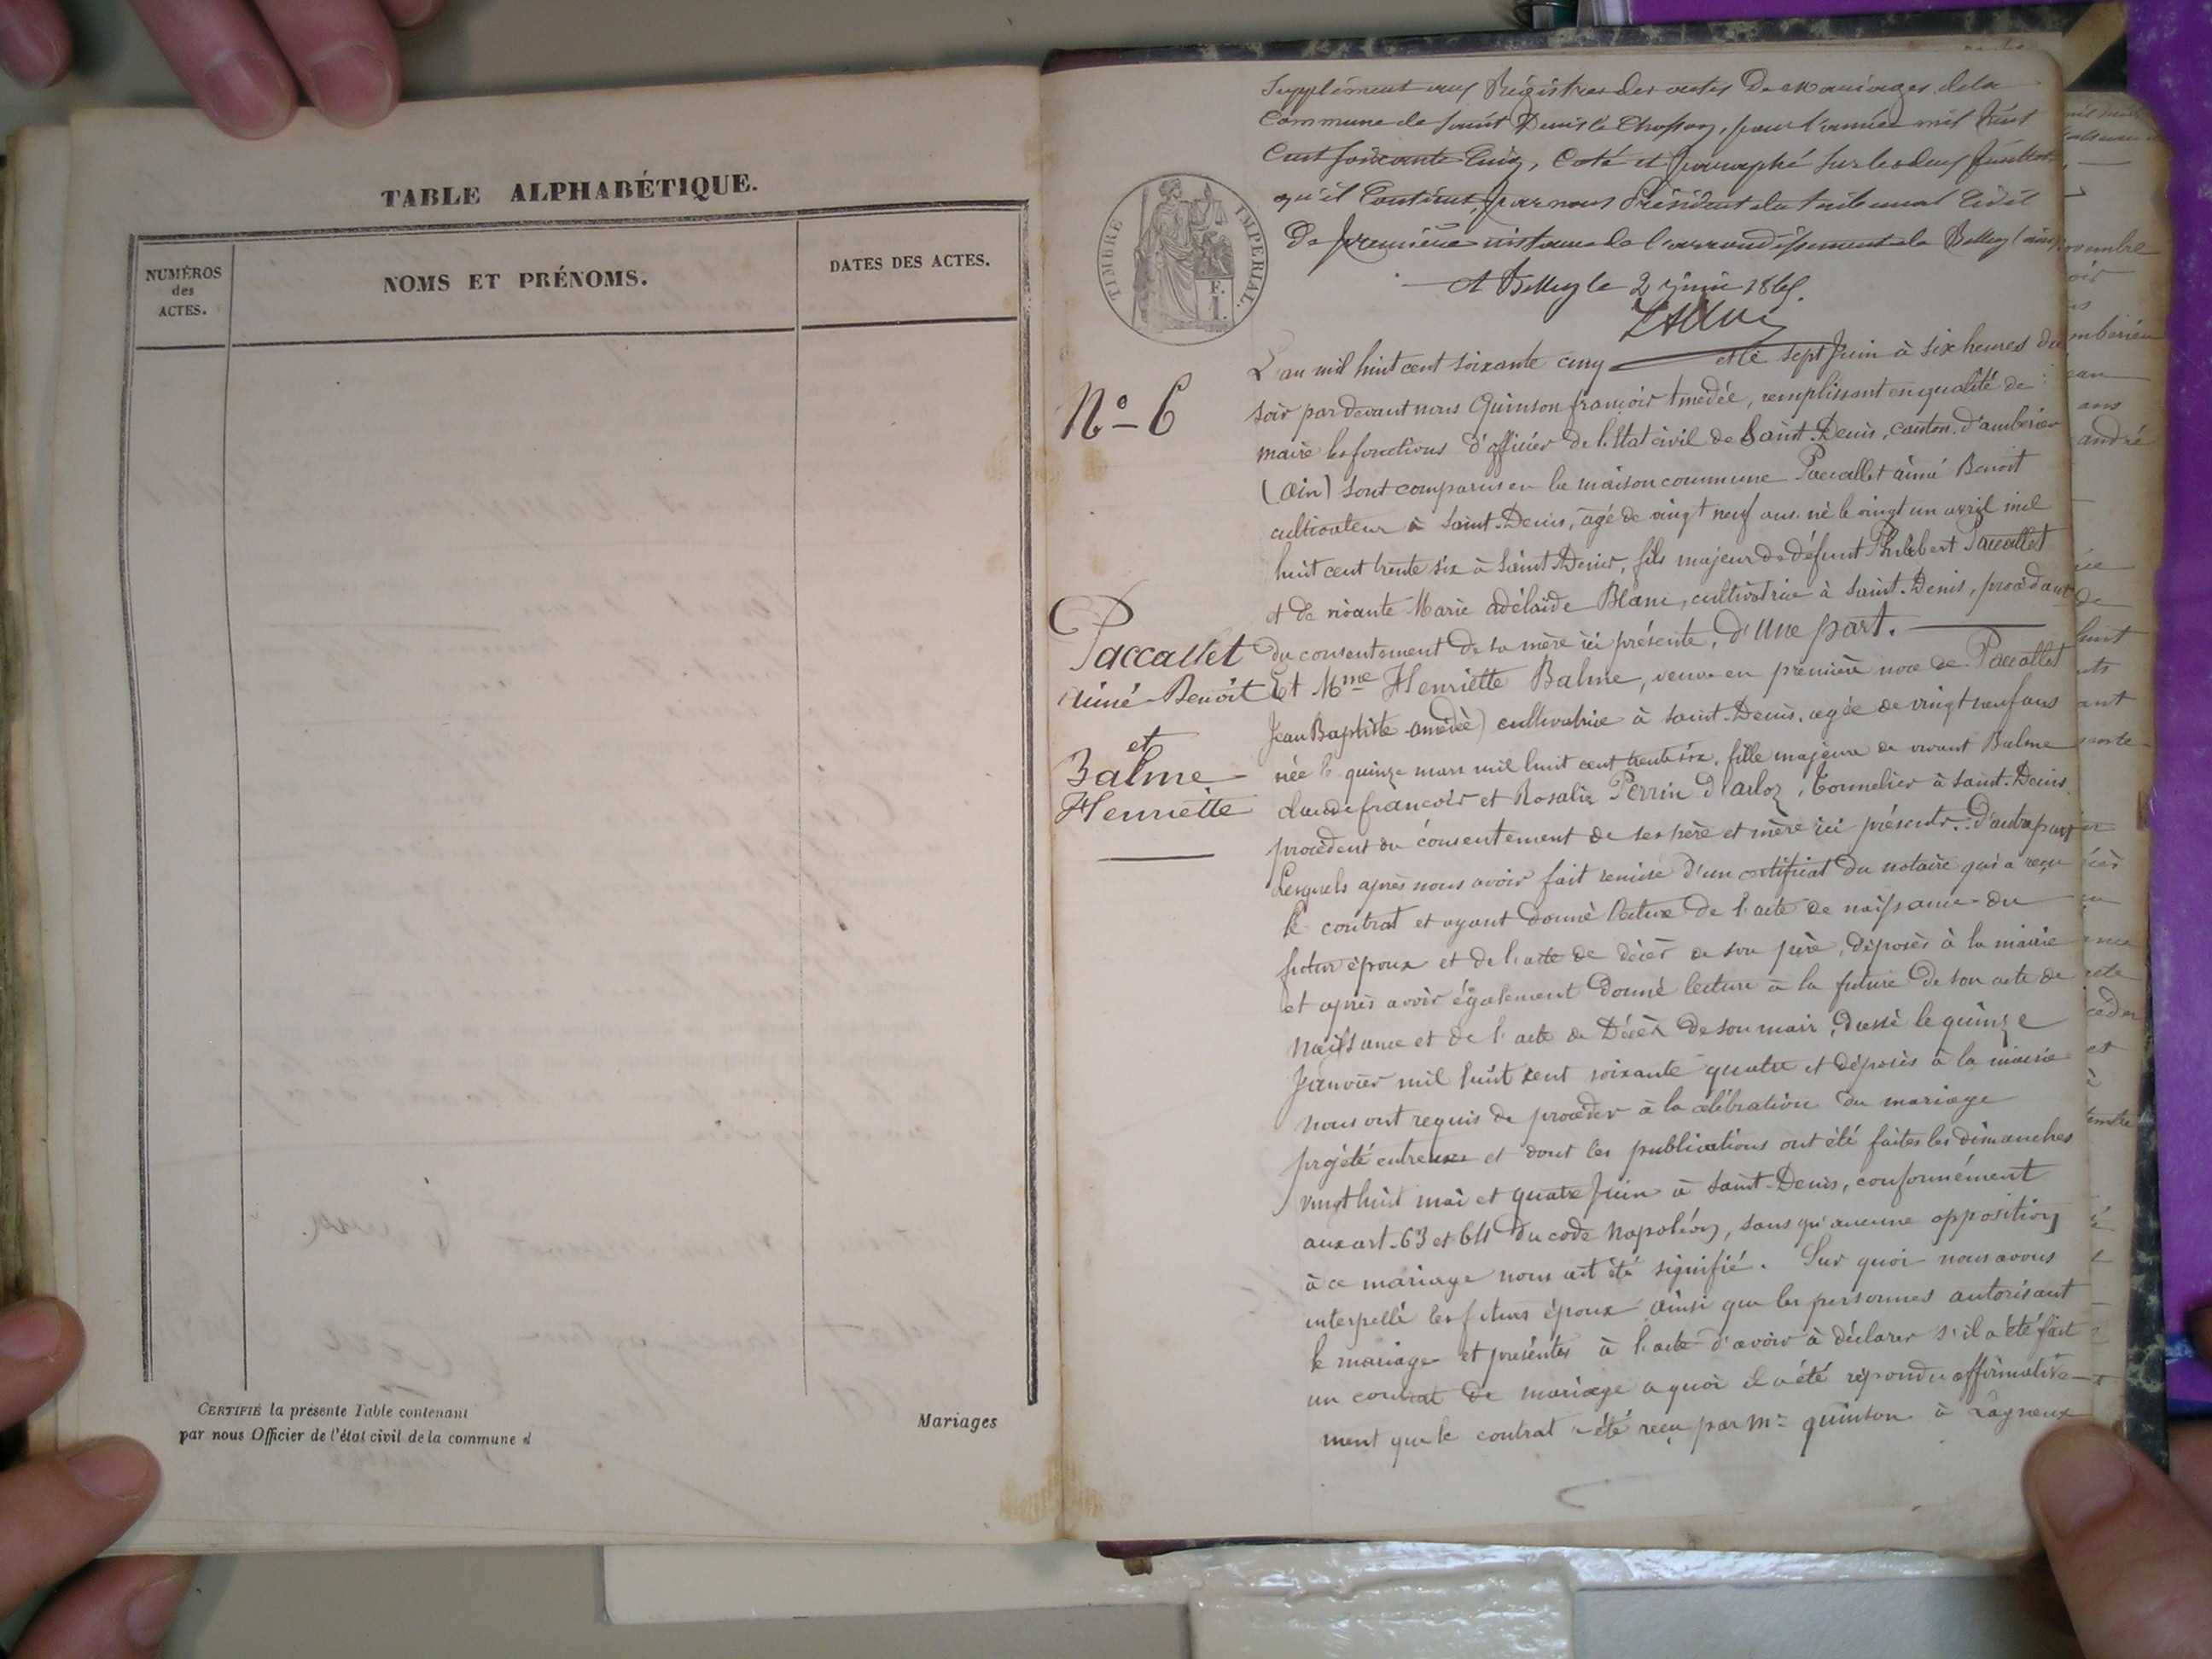 TABLE ALPHABÉTIQUE.
NUMÉROS
des
ACTES.
NOMS ET PRÉNOMS.
DATES DES ACTES.
CERTIFIÉ la présente Table contenant
par nous Officier de l'état civil de la commune d
Mariages
Supplément aux Régistres des actes De mariages de la
Commune de Saint Denis le Chosson, pour l'année mil huit
Cent Soixante Cinq, Coté et paraphé sur les deux feuillets
qu'il Contient, par nous Président du tribunal Civil
De première instance de l'arrondissement de Belley (ain)
A Belley le 2 juin 1865.
TIMBRE IMPERIAL.
F.
1.
N° 6
L'an mil huit cent soixante cinq et le sept Juin à six heures du
soir par devant nous Quinson françois Amédée, remplissant en qualité de
maire les fonctions d'officier de l'Etat civil de Saint Denis, canton d'amberieu
(Ain) sont comparus en la maison commune Paccallet aimé Benoit
cultivateur à Saint-Denis, âgé de vingt neuf ans né le vingt un avril mil
huit cent trente six à Saint Denis, fils majeur de défunt Philibert Paccallet
et de vivante Marie adélaïde Blanc, cultivatrice à Saint-Denis, procédant
du consentement de sa mère ici présente, d'une part.
Paccallet
aimé Benoit
et
Balme
Henriette
Et Mme Henriette Balme, veuve en première noce de Paccallet
Jean Baptiste amédée) cultivatrice à saint-Denis, agée de vingt neuf ans
née le quinze mars mil huit cent trente six, fille majeure de vivant Balme
claude françois et Rosalie Perrin D'arloz, Tonnelier à Saint-Denis
procèdent du consentement de ses père et mère ici présents. D'autre part
Lesquels après nous avoir fait remise d'un certificat du notaire qui a reçu
le contrat et ayant donné lecture de l'acte de naissance du
futur époux et de l'acte de décès de son père, déposés à la mairie
et après avoir également donné lecture à la future de son acte de
naissance et de l'acte de Décès de son mari, dressé le quinze
Janvier mil huit cent soixante quatre et déposés à la mairie
nous ont requis de procéder à la célébration du mariage
projété entre eux et dont les publications ont été faites les dimanches
vingt huit mai et quatre Juin à Saint-Denis, conformément
aux art. 63 et 64 du code Napoléon, sans qu'aucune opposition
à ce mariage nous ait été signifié. Sur quoi nous avons
interpellé les futurs époux ainsi que les personnes autorisant
le mariage et présentes à l'acte d'avoir à déclarer s'il a été fait
un contrat de mariage a quoi il a été répondu affirmative-
ment que le contrat a été reçu par Me quinson à Lagnieux